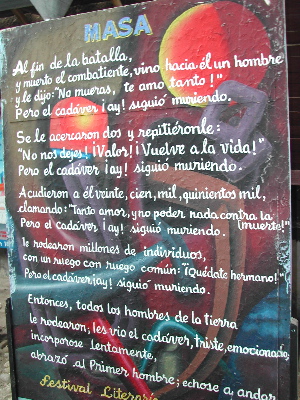 MASA
Al fin de la batalla,
y muerto el combatiente, vino hacia él un hombre
y le dijo: "No mueras, te amo tanto!"
Pero el cadáver ¡ay! siguió muriendo.
Se le acercaron dos y repitiéronle:
"No nos dejes! ¡Valor! ¡Vuelve a la vida!"
Pero el cadáver ¡ay! siguió muriendo.
Acudieron a él veinte, cien, mil, quinientos mil,
clamando: "Tanto amor, y no poder nada contra la
¡muerte!"
Pero el cadáver ¡ay! siguió muriendo.
le rodearon millones de individuos,
con un ruego con ruego común: "¡Quédate hermano!"
Pero el cadáver ¡ay! siguió muriendo.
Entonces, todos los hombres de la tierra
le rodearon; les vio el cadáver, triste, emocionado;
incorporose lentamente,
abrazó al Primer hombre; echose a andar
Festival Literario